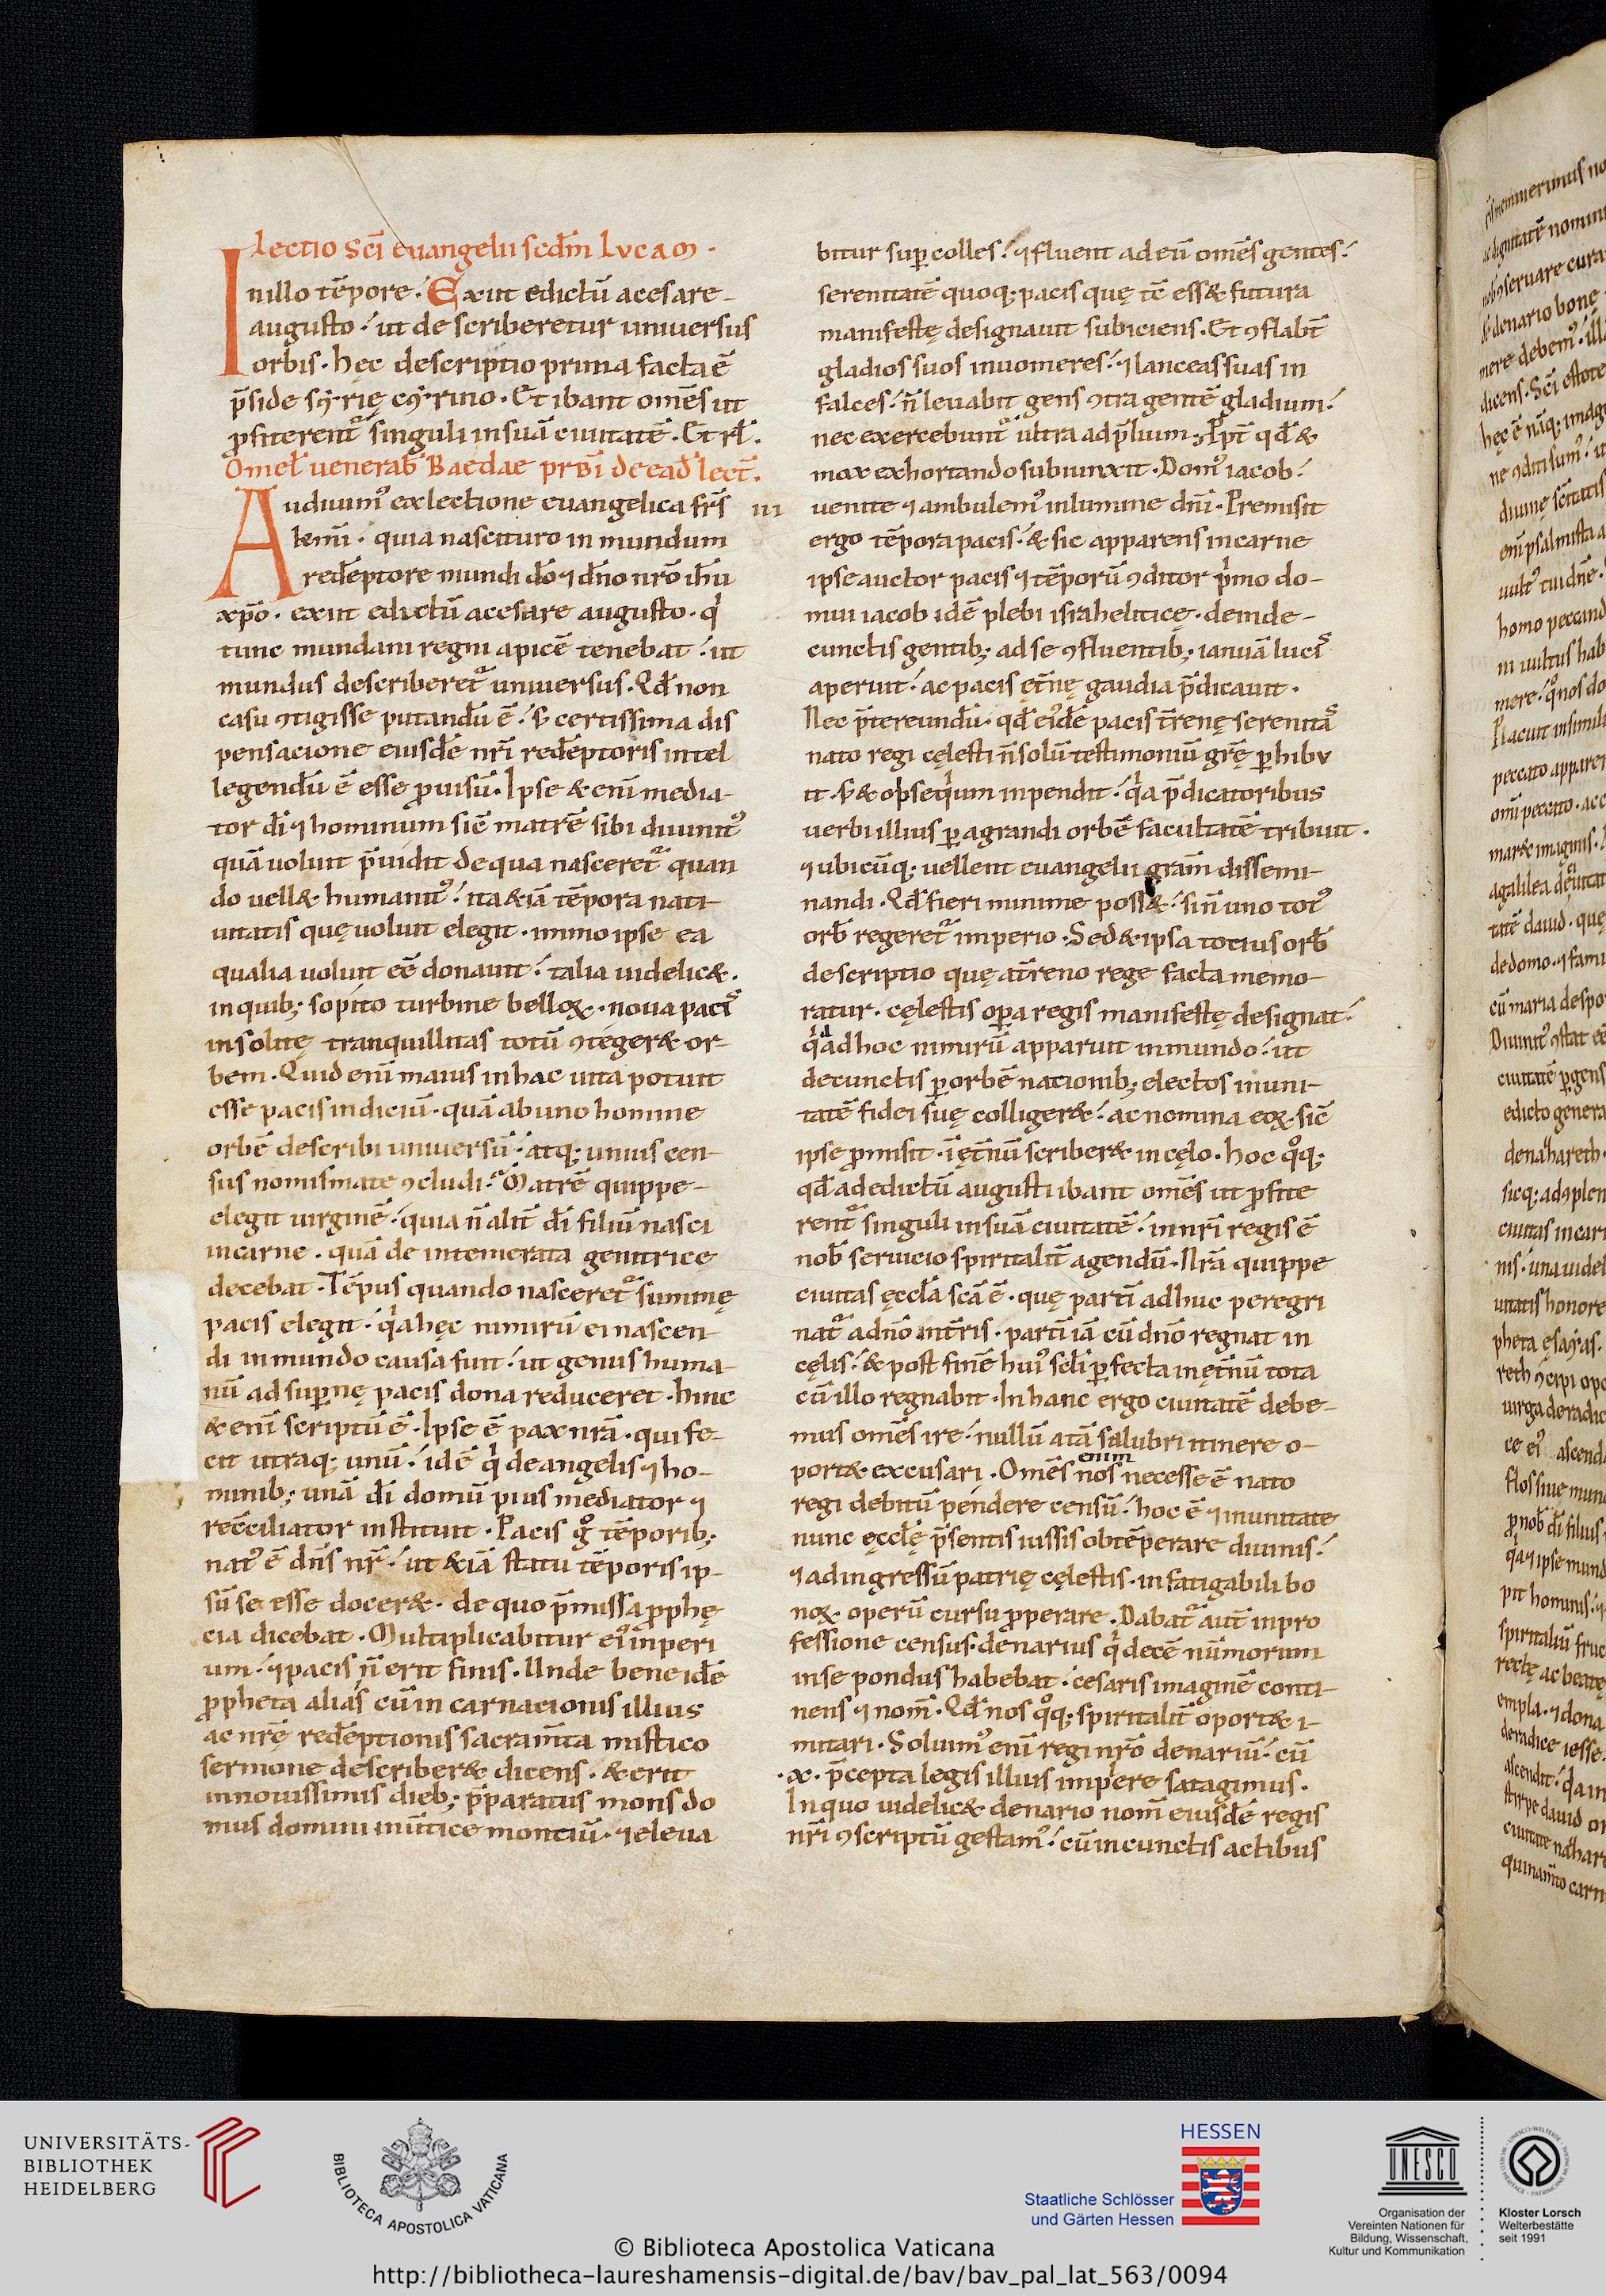 Lectio sc̄i euangelii scd̄m Lvcam·
Inillo tēpore. Exiit edictū acesare
augusto. ut describeretur uniuersus
orbis. hęc descriptio prima facta ē
p̄side sẏrię cẏrino. Et ibant om̄s ut
ꝓfiterent᷑ singuli insuā ciuitatē. Et rl̄.
Omel̄ uenerab̄ Baedae prb̄i de ead̄ lect̄.
Audiuimꝰ exlectione euangelica frs̄ iii
kem̄i. quia nascituro in mundum
redēptore mundi dō ⁊ dn̄o nr̄o ih̄u
xp̄o. exiit edictū acesare augusto. qͥ
tunc mundani regni apicē tenebat. ut
mundus describeret᷑ uniuersus. Qd̄ non
casu ɔtigisse putandū ē. s; certissima dis
pensacione eiusdē nr̄i redēptoris intel
legendū ē esse ꝓuisū. Ipse & enī media-
tor dī ⁊ hominum sic̄ matrē sibi diuinitꝰ
quā uoluit p̄uidit dequa nasceret᷑ quan
do uell& humanitꝰ. ita &iā tēpora nati-
uitatis quęuoluit elegit. immo ipse ea
qualia uoluit eē donauit. talia uidelic&.
inquib; sopito turbine belloꝝ. noua pacis
insolitę tranquillitas totū ɔteger& or-
bem. Quid enī maius inhac uita potuit
esse pacis indiciū. quā abuno homine
orbē describi uniuersū. atq; unius cen-
sus nomismate ɔcludi. Matrē quippe
elegit uirginē. quia n̄ alit̄ dī filiū nasci
incarne. quā de intemerata genitrice
decebat. Tēpus quando nasceret᷑ summę
pacis elegit. qͥa hęc nimirū ei nascen-
di inmundo causa fuit. ut genus huma-
nū ad suꝑnę pacis dona reduceret. hinc
& enī scriptū ē. Ipse ē pax nr̄a. qui fe-
cit utraq; unū. id ē qͥ de angelis ⁊ ho-
minib; unā dī domū pius mediator ⁊
recc̄iliator instituit. Pacis gͦ tēporib;
natꝰ ē dn̄s nr̄. ut &iā statu tēporis ip-
sū se esse docer&. de quo p̄missa ꝓphę
cia dicebat. Multiplicabitur eiꝰ imperi
um. ⁊ pacis n̄ erit finis. Unde bene idē
ꝓpheta alias cū in carnacionis illius
ac nr̄ę redēptionis sacram̄ta mistico
sermone describer& dicens. & erit
innouissimis dieb; p̄paratus mons do
mus domini inūtice montiū. ⁊ eleua
bitur suꝑ colles. ⁊ fluent ad eū om̄s gentes.
serenitatē quoq; pacis quę tc̄ ess& futura
manifestę designauit subiciens. Et ɔflabt̄
gladios suos inuomeres. ⁊ lanceas suas in
falces. n̄ leuabit gens ɔtra gentē gladium.
nec exercebunt᷑ ultra ad p̄lium; Ppt̄ qd̄ &
mox exhortando subiunxit. Domꝰ iacob.
uenite ⁊ ambulemꝰ inlumine dn̄i. Premisit
ergo tēpora pacis. & sic apparens incarne
ipse auctor pacis ⁊ tēporū ɔditor pͥmo do-
mui iacob idē plebi israheliticę. deinde
cunctis gentib; ad se ɔfluentib; ianuā lucis
aperuit. ac pacis ęt̄nę gaudia p̄dicauit.
Nec p̄tereundū. qd̄ eiꝰdē pacis t̄renę serenitas
nato regi cęlesti n̄ solū testimoniū gr̄ę ꝑhibu
it. s; & obseqͥum inpendit. qͥa p̄dicatoribus
uerbi illius ꝑagrandi orbē facultatē tribuit.
⁊ ubicūq; uellent euangelii gram̄ dissemi-
nandi. Qd̄ fieri minime poss&. si n̄ uno totꝰ
orb̄ regeret᷑ imperio. Sed & ipsa totius orb̄
descriptio quę at̄reno rege facta memo-
ratur. cęlestis oꝑa regis manifestę designat.
qͥa ad hoc nimirū apparuit inmundo. ut
decunctis ꝑ orbē nacionib; electos inuni-
tatē fidei suę colliger&. ac nomina eoꝝ sic̄
ipse ꝓmisit. ī ęt̄nū scriber& in cęlo. hoc qͦq;
qd̄ ad edictū augusti ibant om̄s ut ꝓfite
rent᷑ singuli insuā ciuitatē. innr̄i regis ē
nob̄ seruicio spiritalit̄ agendū. Nr̄a quippe
ciuitas ęccl̄a sc̄a ē. quę partī adhuc peregri
nat᷑ adn̄o int̄ris. partī iā cū dn̄o regnat in
cęlis. & post finē huiꝰ scl̄i ꝑfecta inęt̄nū tota
cū illo regnabit. In hanc ergo ciuitatē debe-
mus om̄s ire. nullū a tā salubri itinere o-
port& excusari. Om̄s enim nos necesse ē nato
regi debitū pendere censū. hoc ē ⁊ inunitate
nunc ęccl̄ę p̄sentis iussis obtēperare diuinis.
⁊ adingressū patrię cęlestis. infatigabili bo
noꝝ operū cursu ꝓperare. Dabat᷑ aut̄ inpro
fessione census. denarius qͥ decē nūmorum
inse pondus habebat. cesaris imaginē conti-
nens ⁊ nom̄. Qd̄ nos qͦq; spiritalit̄ oport& i-
mitari. Soluimꝰ enī regi nr̄o denariū. cū
.x. p̄cepta legis illius impͥere satagimus.
Inquo uidelic& denario nom̄ eiusdē regis
nr̄i ɔscriptū gestamꝰ. cū incunctis actibus
UNIVERSITÄTS-
BIBLIOTHEK
HEIDELBERG
BIBLIOTECA APOSTOLICA VATICANA
HESSEN
Staatliche Schlösser
und Gärten Hessen
UNESCO
Organisation der
Vereinten Nationen für
Bildung, Wissenschaft,
Kultur und Kommunikation
Kloster Lorsch
Welterbestätte
seit 1991
© Biblioteca Apostolica Vaticana
http://bibliotheca-laureshamensis-digital.de/bav/bav_pal_lat_563/0094